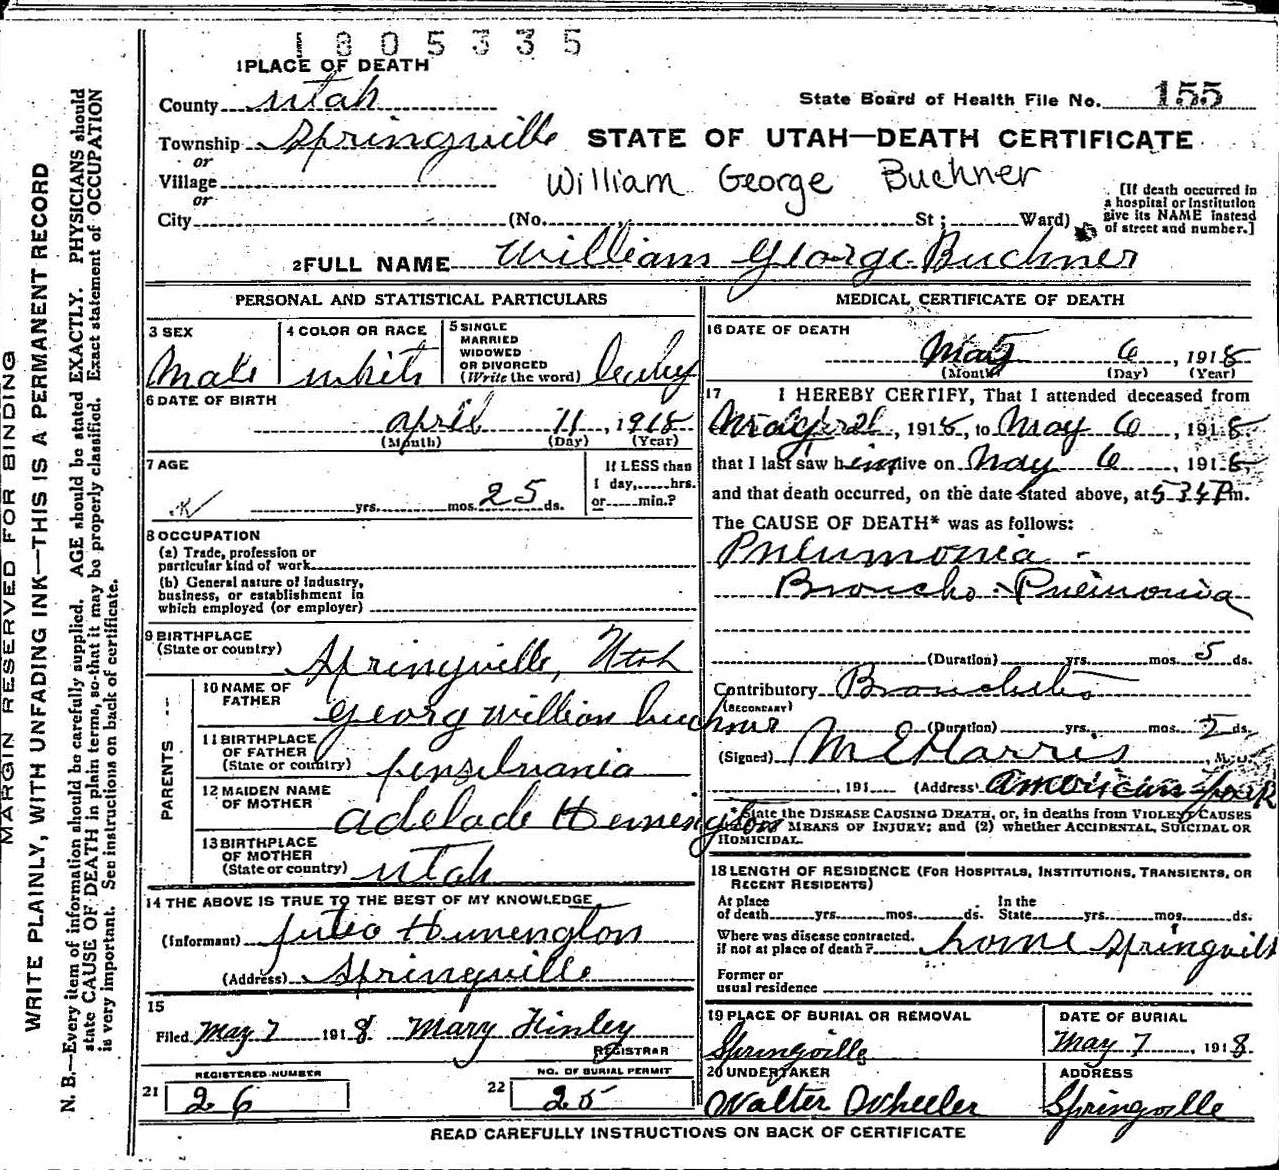 1805335
1 PLACE OF DEATH
County Utah
State Board of Health File No. 155
Township Springville
STATE OF UTAH—DEATH CERTIFICATE
or
Village
William George Buchner
or
City (No. St; Ward)
[If death occurred in
a hospital or institution
give its NAME instead
of street and number.]
2 FULL NAME William George Buchner
PERSONAL AND STATISTICAL PARTICULARS
3 SEX
Male
4 COLOR OR RACE
white
5 SINGLE
MARRIED
WIDOWED
OR DIVORCED
(Write the word)
6 DATE OF BIRTH
april 11, 1918
(Month) (Day) (Year)
7 AGE
yrs. mos. 25 ds.
If LESS than
1 day, hrs.
or min.?
8 OCCUPATION
(a) Trade, profession or
particular kind of work
(b) General nature of industry,
business, or establishment in
which employed (or employer)
9 BIRTHPLACE
(State or country)
Springville, Utah
PARENTS
10 NAME OF
FATHER
Georg William buchner
11 BIRTHPLACE
OF FATHER
(State or country)
pensilvania
12 MAIDEN NAME
OF MOTHER
adelade
13 BIRTHPLACE
OF MOTHER
(State or country)
utah
14 THE ABOVE IS TRUE TO THE BEST OF MY KNOWLEDGE
(Informant)
(Address) Springville
15
Filed May 7 1918 Mary Finley
REGISTRAR
REGISTERED NUMBER
21 26
NO. OF BURIAL PERMIT
22 25
MEDICAL CERTIFICATE OF DEATH
16 DATE OF DEATH
May 6, 1918
(Month) (Day) (Year)
17 I HEREBY CERTIFY, That I attended deceased from
, 1918, to May 6, 1918,
that I last saw him alive on May 6, 1918,
and that death occurred, on the date stated above, at 5 34 P m.
The CAUSE OF DEATH* was as follows:
Pneumonia -
Broncho-Pneimonia
(Duration) yrs. mos. 5 ds.
Contributory
(SECONDARY)
(Duration) yrs. mos. ds.
(Signed) M E Harris, M. D.
, 191 (Address) american fork
*State the DISEASE CAUSING DEATH, or, in deaths from VIOLENT CAUSES
MEANS OF INJURY; and (2) whether ACCIDENTAL, SUICIDAL OR
HOMICIDAL.
18 LENGTH OF RESIDENCE (FOR HOSPITALS, INSTITUTIONS, TRANSIENTS, OR
RECENT RESIDENTS)
At place In the
of death yrs. mos. ds. State yrs. mos. ds.
Where was disease contracted,
if not at place of death? home Springville
Former or
usual residence
19 PLACE OF BURIAL OR REMOVAL
Springville
DATE OF BURIAL
May 7, 1918
20 UNDERTAKER
Walter Wheeler
ADDRESS
Springville
READ CAREFULLY INSTRUCTIONS ON BACK OF CERTIFICATE
MARGIN RESERVED FOR BINDING
WRITE PLAINLY, WITH UNFADING INK—THIS IS A PERMANENT RECORD
N. B.—Every item of information should be carefully supplied. AGE should be stated EXACTLY. PHYSICIANS should
state CAUSE OF DEATH in plain terms, so that it may be properly classified. Exact statement of OCCUPATION
is very important. See instructions on back of certificate.